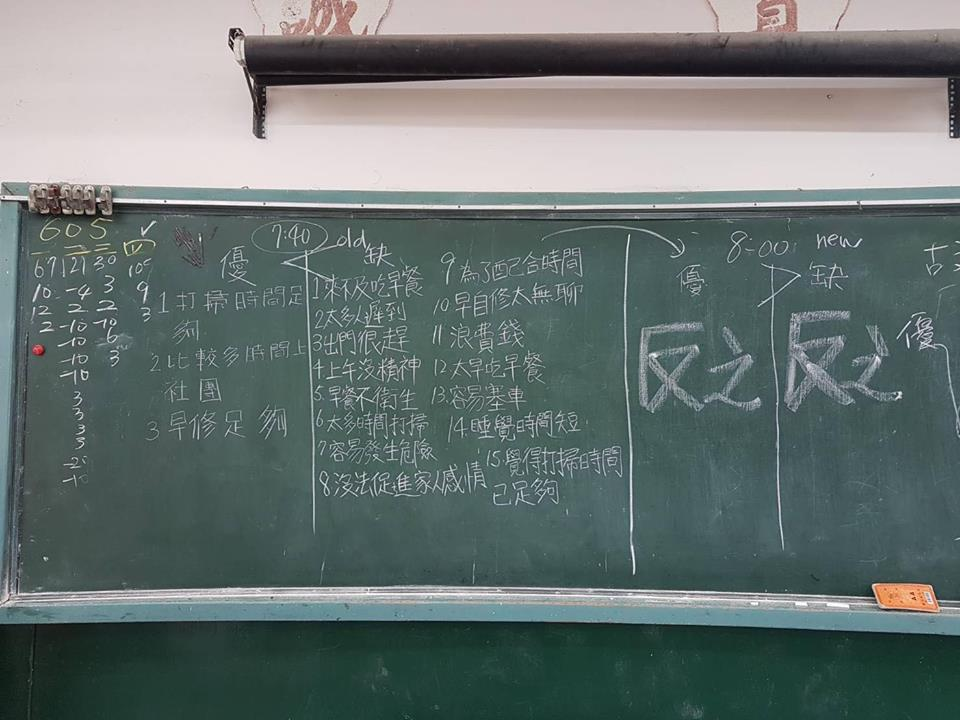 誠
605 四
67 121 30 10
10 -4 3 9
12 -2 -2 3
2 -10 -10
-10 6
-10 3
-10
3
3
3
3
-2
-10
7:40 old
優
1 打掃時間足
夠
2 比較多時間上
社團
3 早修足夠
缺
1 來不及吃早餐
2 太多人遲到
3 出門很趕
4 上午沒精神
5. 早餐不衛生
6 太多時間打掃
7 容易發生危險
8. 沒法促進家人感情
9 為了配合時間
10 早自修太無聊
11 浪費錢
12 太早吃早餐
13. 容易塞車
14. 睡覺時間短
15. 覺得打掃時間
已足夠
8:00 new
優
反之
缺
反之
優